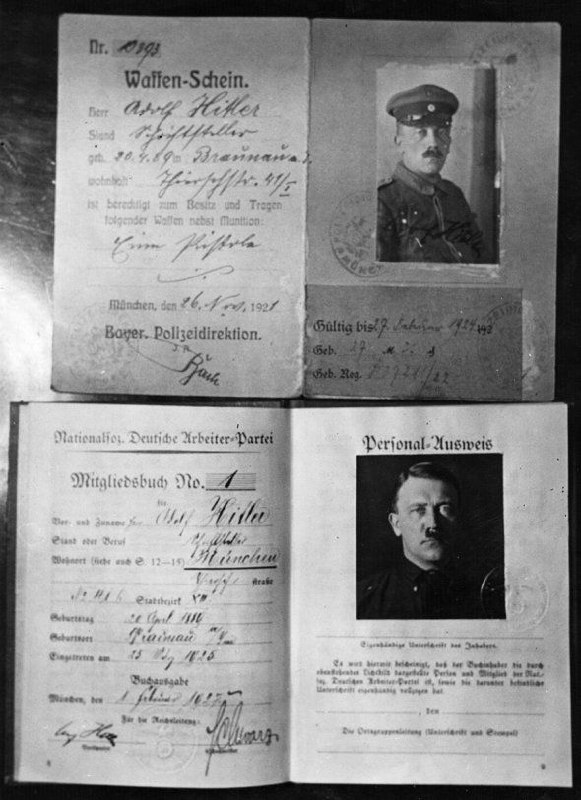 Nr. 10393
Waffen-Schein.
Herr Adolf Hitler
Stand Schriftsteller
geb. 20.4.89 in Braunau a. J.
wohnhaft Thierschstr. 41/I
ist berechtigt zum Besitz und Tragen
folgender Waffen nebst Munition:
Eine Pistole
München, den 26. Nov. 1921
Bayer. Polizeidirektion.
Gültig bis 27. Januar 192
Geb.
Geb. Reg.
Nationalsoz. Deutsche Arbeiter-Partei
Mitgliedsbuch No. 1
für
Vor- und Zuname Herr Adolf Hitler
Stand oder Beruf Schriftsteller
Wohnort (siehe auch S. 12—15) München
straße
No. Stadtbezirk
Geburtstag 20 April
Geburtsort Braunau
Eingetreten am 1925
Buchausgabe
München, den 1. Februar 1927
Für die Reichsleitung:
Schwarz
8
Personal-Ausweis
Eigenhändige Unterschrift des Inhabers.
Es wird hiermit bescheinigt, daß der Buchinhaber die durch
obenstehendes Lichtbild dargestellte Person und Mitglied der Nat.
soz. Deutschen Arbeiter-Partei ist, sowie die darunter befindliche
Unterschrift eigenhändig vollzogen hat.
den
Die Ortsgruppenleitung (Unterschrift und Stempel)
9